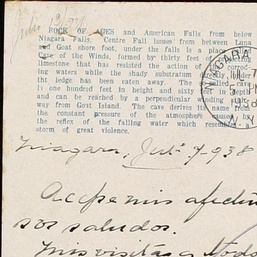 ROCK OF AGES and American Falls from below
Niagara Falls. Centre Fall issues from between Luna
and Goat shore foot, under the falls is a place
Cave of the Winds, formed by thirty feet of
limestone that has resisted the action of
ing waters while the shady substratum under
ht ledge has been eaten away. The cave
is one hundred feet in height and sixty feet in
and can be reached by a perpendicular
way from Govt Island. The cave derives its name from
the constant pressure of the atmosphere caused by
the reflex of the falling water which resembles a
storm of great violence.
NIAGARA
Niagara, July 7, 1938
sos saludos.
mis visitas a todos